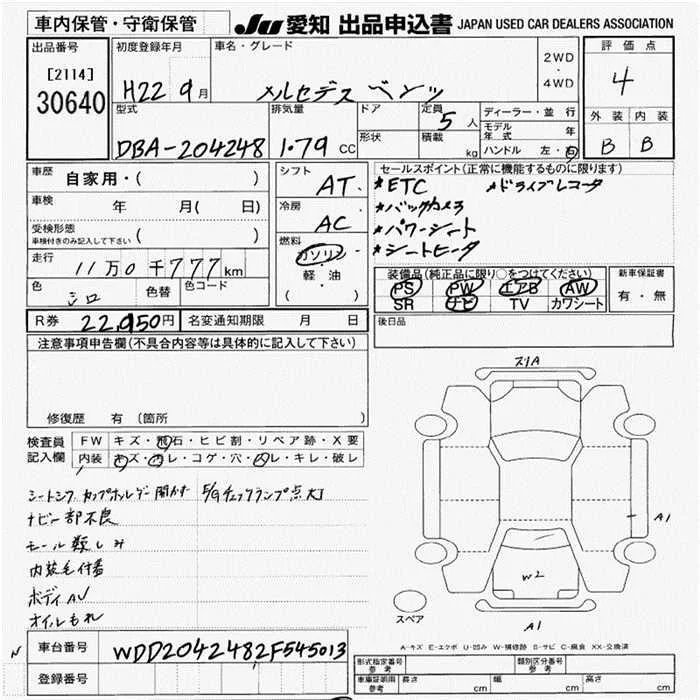 車内保管・守衛保管
JU 愛知 出品申込書 JAPAN USED CAR DEALERS ASSOCIATION
出品番号
[2114]
30640
初度登録年月
H22 9月
車名・グレード
メルセデス ベンツ
2WD
・
4WD
評価点
4
外装 内装
B B
型式
DBA-204248
排気量
1.79 CC
ドア
形状
定員
5人
積載
kg
ディーラー・並行
モデル年式 年
ハンドル 左・右
車歴
自家用・( )
車検
年 月(日)
受検形態
車検付きのみ記入して下さい ( )
走行
11万0千777km
色
シロ
色替
色コード
シフト
AT
冷房
AC
燃料
ガソリン
軽・油
( )
セールスポイント(正常に機能するものに限ります)
*ETC *ドライブレコーダ
*バックカメラ
*パワーシート
*シートヒータ
装備品(純正品に限り○をつけてください)
PS PW エアB AW
SR ナビ TV カワシート
新車保証書
有・無
R券 22,950円
名変通知期限 月 日
後日品
注意事項申告欄(不具合内容等は具体的に記入して下さい)
修復歴 有(箇所 )
検査員
記入欄
FW キズ・飛石・ヒビ割・リペア跡・X要
内装 キズ・汚レ・コゲ・穴・スレ・キレ・破レ
E/Gチェックランプ点灯
ナビ一部不良
内装毛付着
ボディAV
オイルもれ
スリA
A1
W2
A1
スペア
A-キズ E-エクボ U-凹み W-補修跡 S-サビ C-腐食 XX-交換済
車台番号
WDD2042482F545013
登録番号
形式指定番号
参考
類別区分番号
参考
車庫証明用
参考
長さ cm
幅 cm
高さ cm